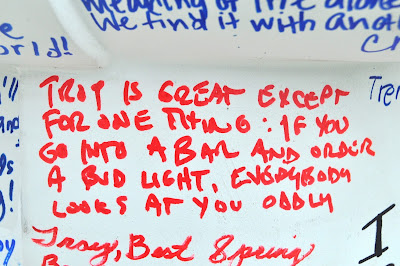 meaning of life alone
We find it with
TROY IS GREAT EXCEPT
FOR ONE THING: IF YOU
GO INTO A BAR AND ORDER
A BUD LIGHT, EVERYBODY
LOOKS AT YOU ODDLY
Troy, Best Spring
I